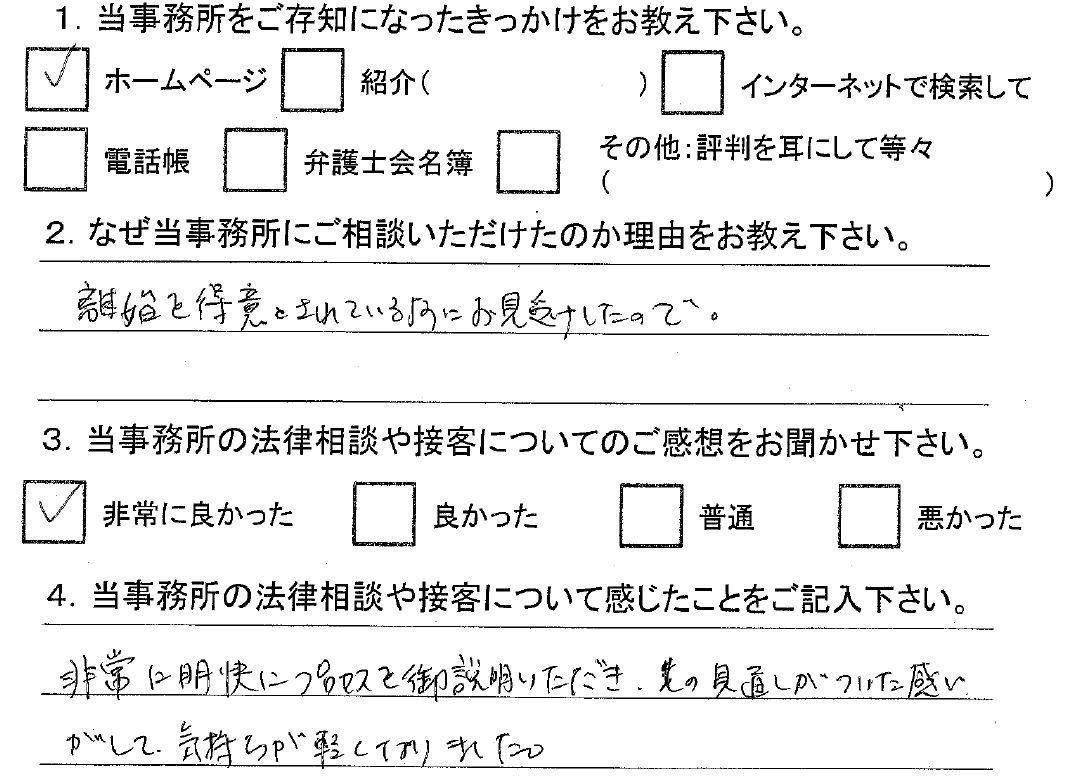 1. 当事務所をご存知になったきっかけをお教え下さい。
ホームページ 紹介( ) インターネットで検索して
電話帳 弁護士会名簿 その他:評判を耳にして等々
( )
2. なぜ当事務所にご相談いただけたのか理由をお教え下さい。
離婚を得意とされているようにお見受けしたので。
3. 当事務所の法律相談や接客についてのご感想をお聞かせ下さい。
非常に良かった 良かった 普通 悪かった
4. 当事務所の法律相談や接客について感じたことをご記入下さい。
非常に明快にプロセスを御説明いただき、先の見通しがついた感い
がして、気持ちが軽くなりました。